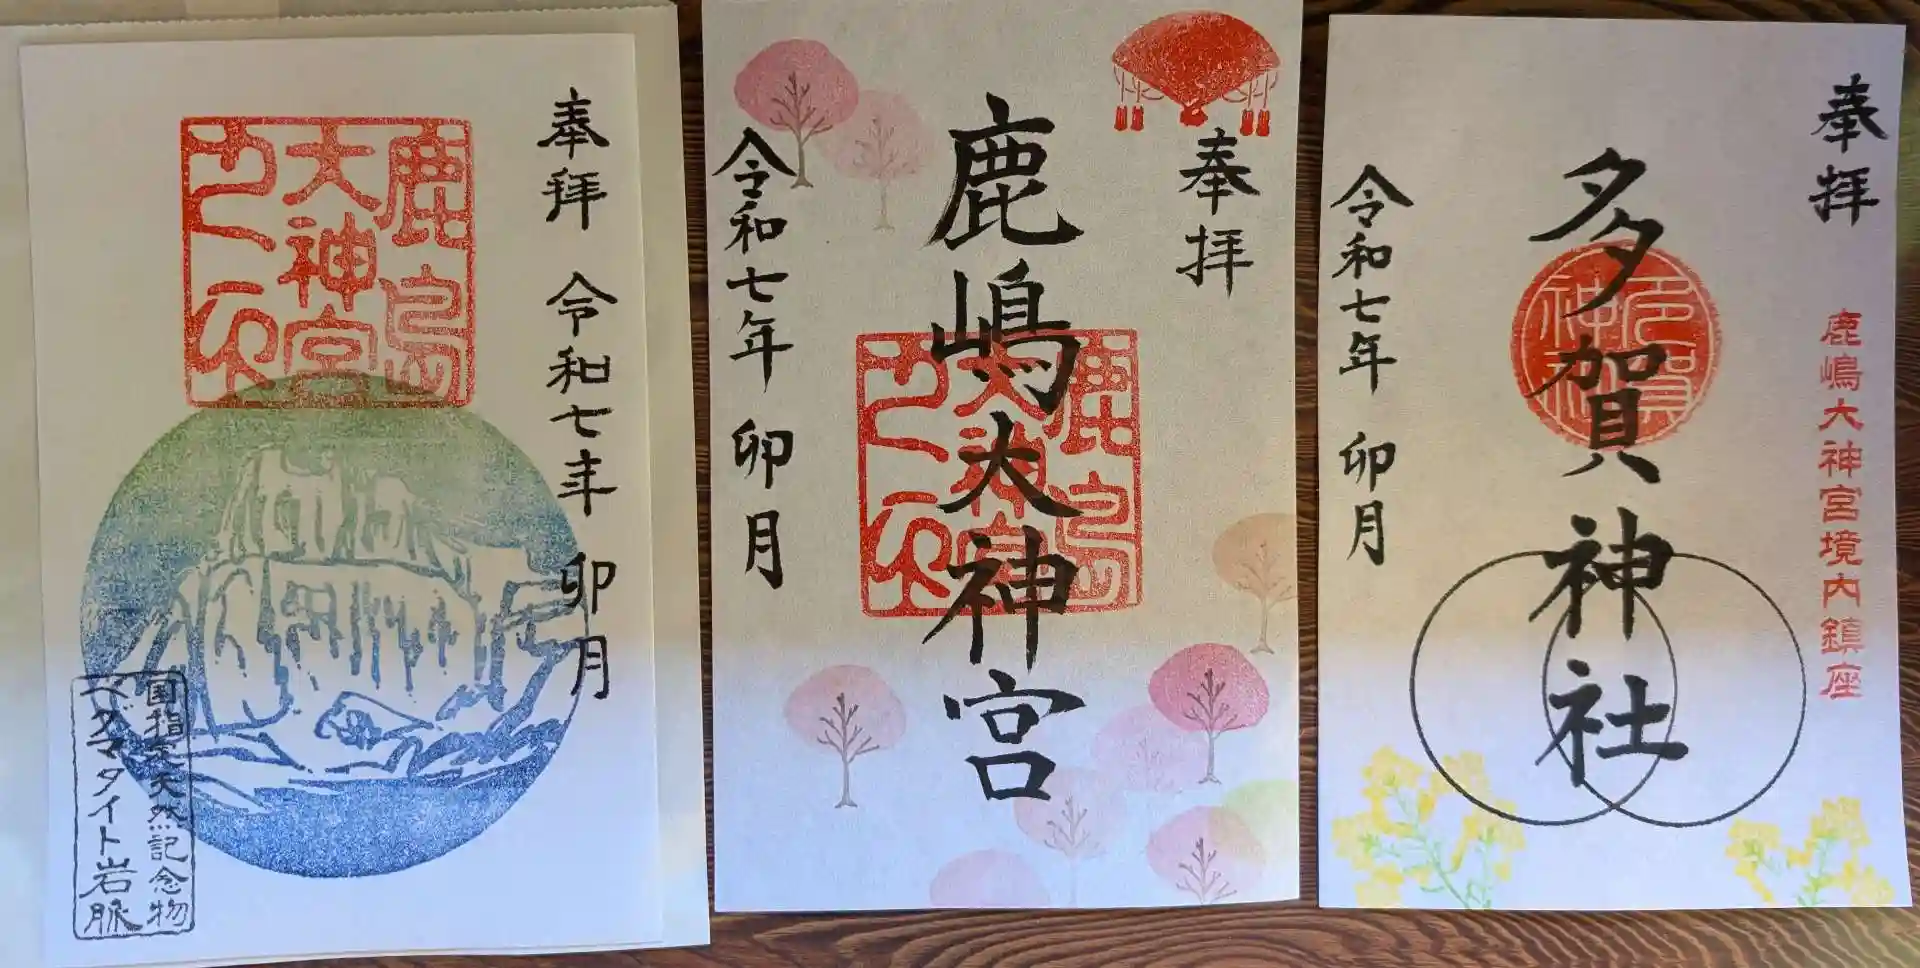 奉拝
令和七年 卯月
鹿島
大神宮
国指定天然記念物
ペグマタイト岩脈
奉拝
鹿嶋大神宮
鹿島
大神宮
令和七年 卯月
奉拝
鹿嶋大神宮境内鎮座
多賀神社
令和七年 卯月